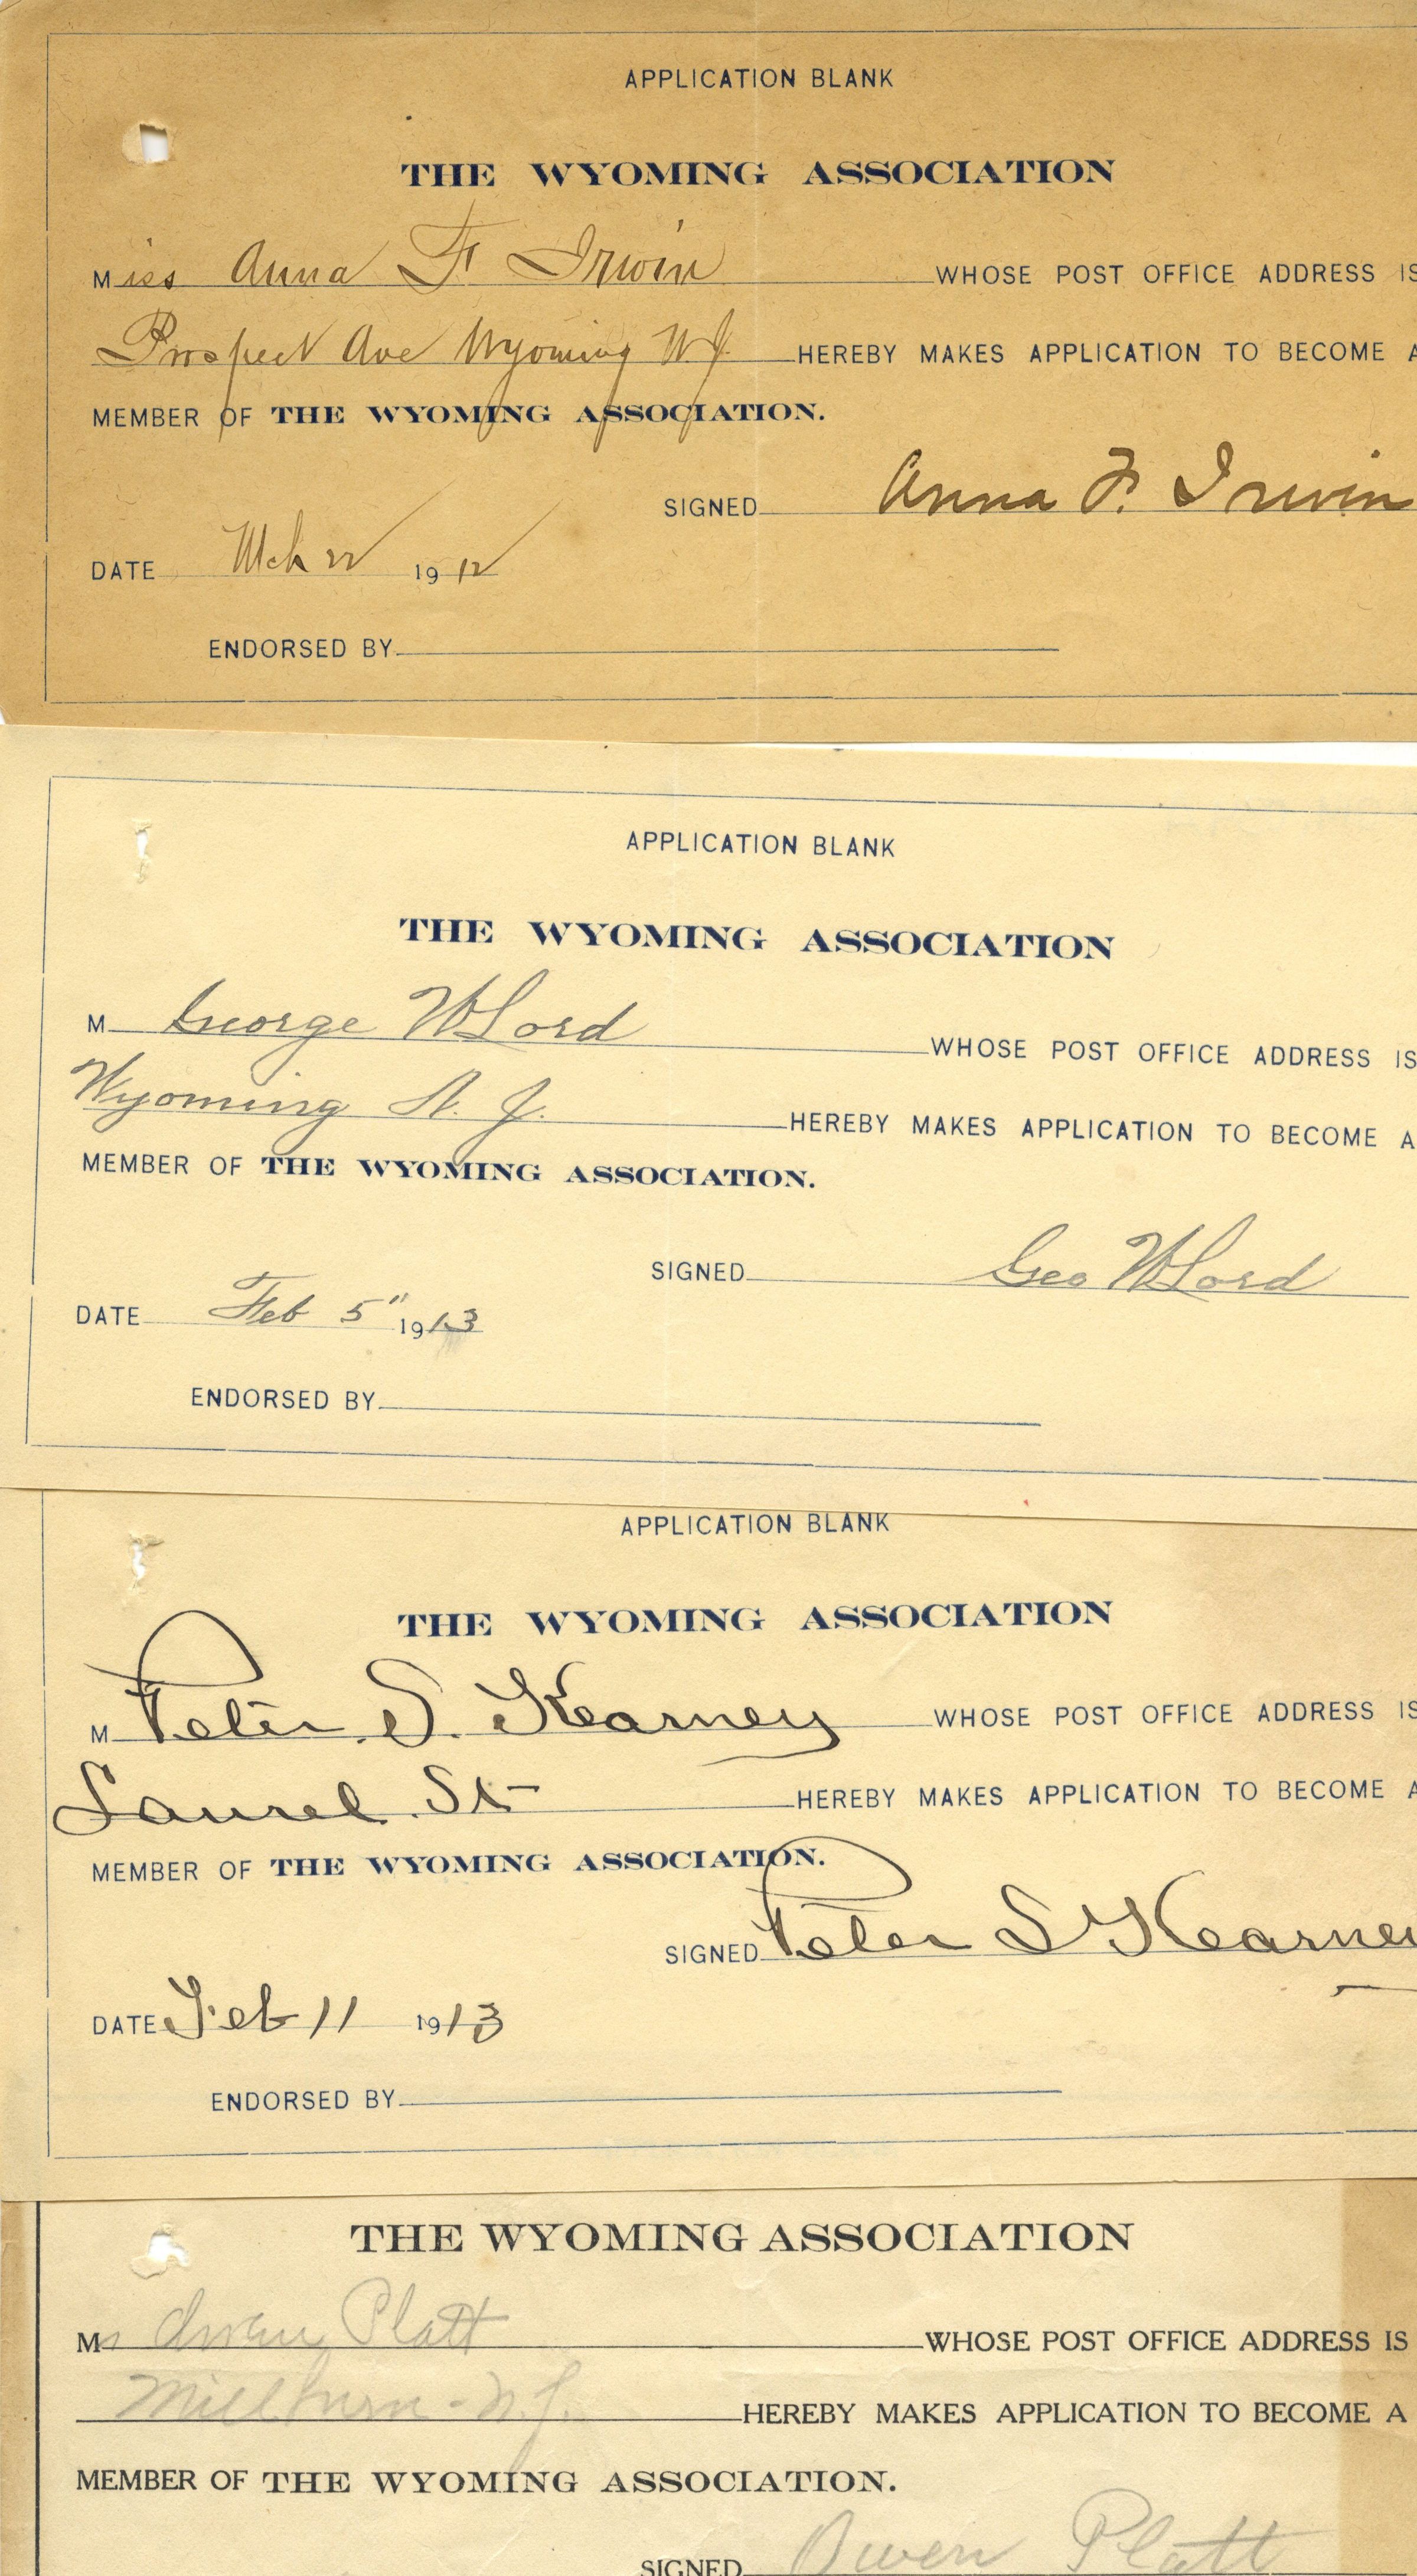 APPLICATION BLANK
THE WYOMING ASSOCIATION
Miss Anna F Irwin WHOSE POST OFFICE ADDRESS IS
Prospect Ave Wyoming N J. HEREBY MAKES APPLICATION TO BECOME A
MEMBER OF THE WYOMING ASSOCIATION.
SIGNED Anna F. Irwin
DATE Mch 22 1912
ENDORSED BY
APPLICATION BLANK
THE WYOMING ASSOCIATION
M George W Lord WHOSE POST OFFICE ADDRESS IS
Wyoming N. J. HEREBY MAKES APPLICATION TO BECOME A
MEMBER OF THE WYOMING ASSOCIATION.
SIGNED Geo W Lord
DATE Feb 5" 1913
ENDORSED BY
APPLICATION BLANK
THE WYOMING ASSOCIATION
M Peter S. Kearney WHOSE POST OFFICE ADDRESS IS
Laurel St HEREBY MAKES APPLICATION TO BECOME A
MEMBER OF THE WYOMING ASSOCIATION.
SIGNED Peter S Kearney
DATE Feb 11 1913
ENDORSED BY
THE WYOMING ASSOCIATION
Mr Owen Platt WHOSE POST OFFICE ADDRESS IS
Millburn - N.J. HEREBY MAKES APPLICATION TO BECOME A
MEMBER OF THE WYOMING ASSOCIATION.
SIGNED Owen Platt